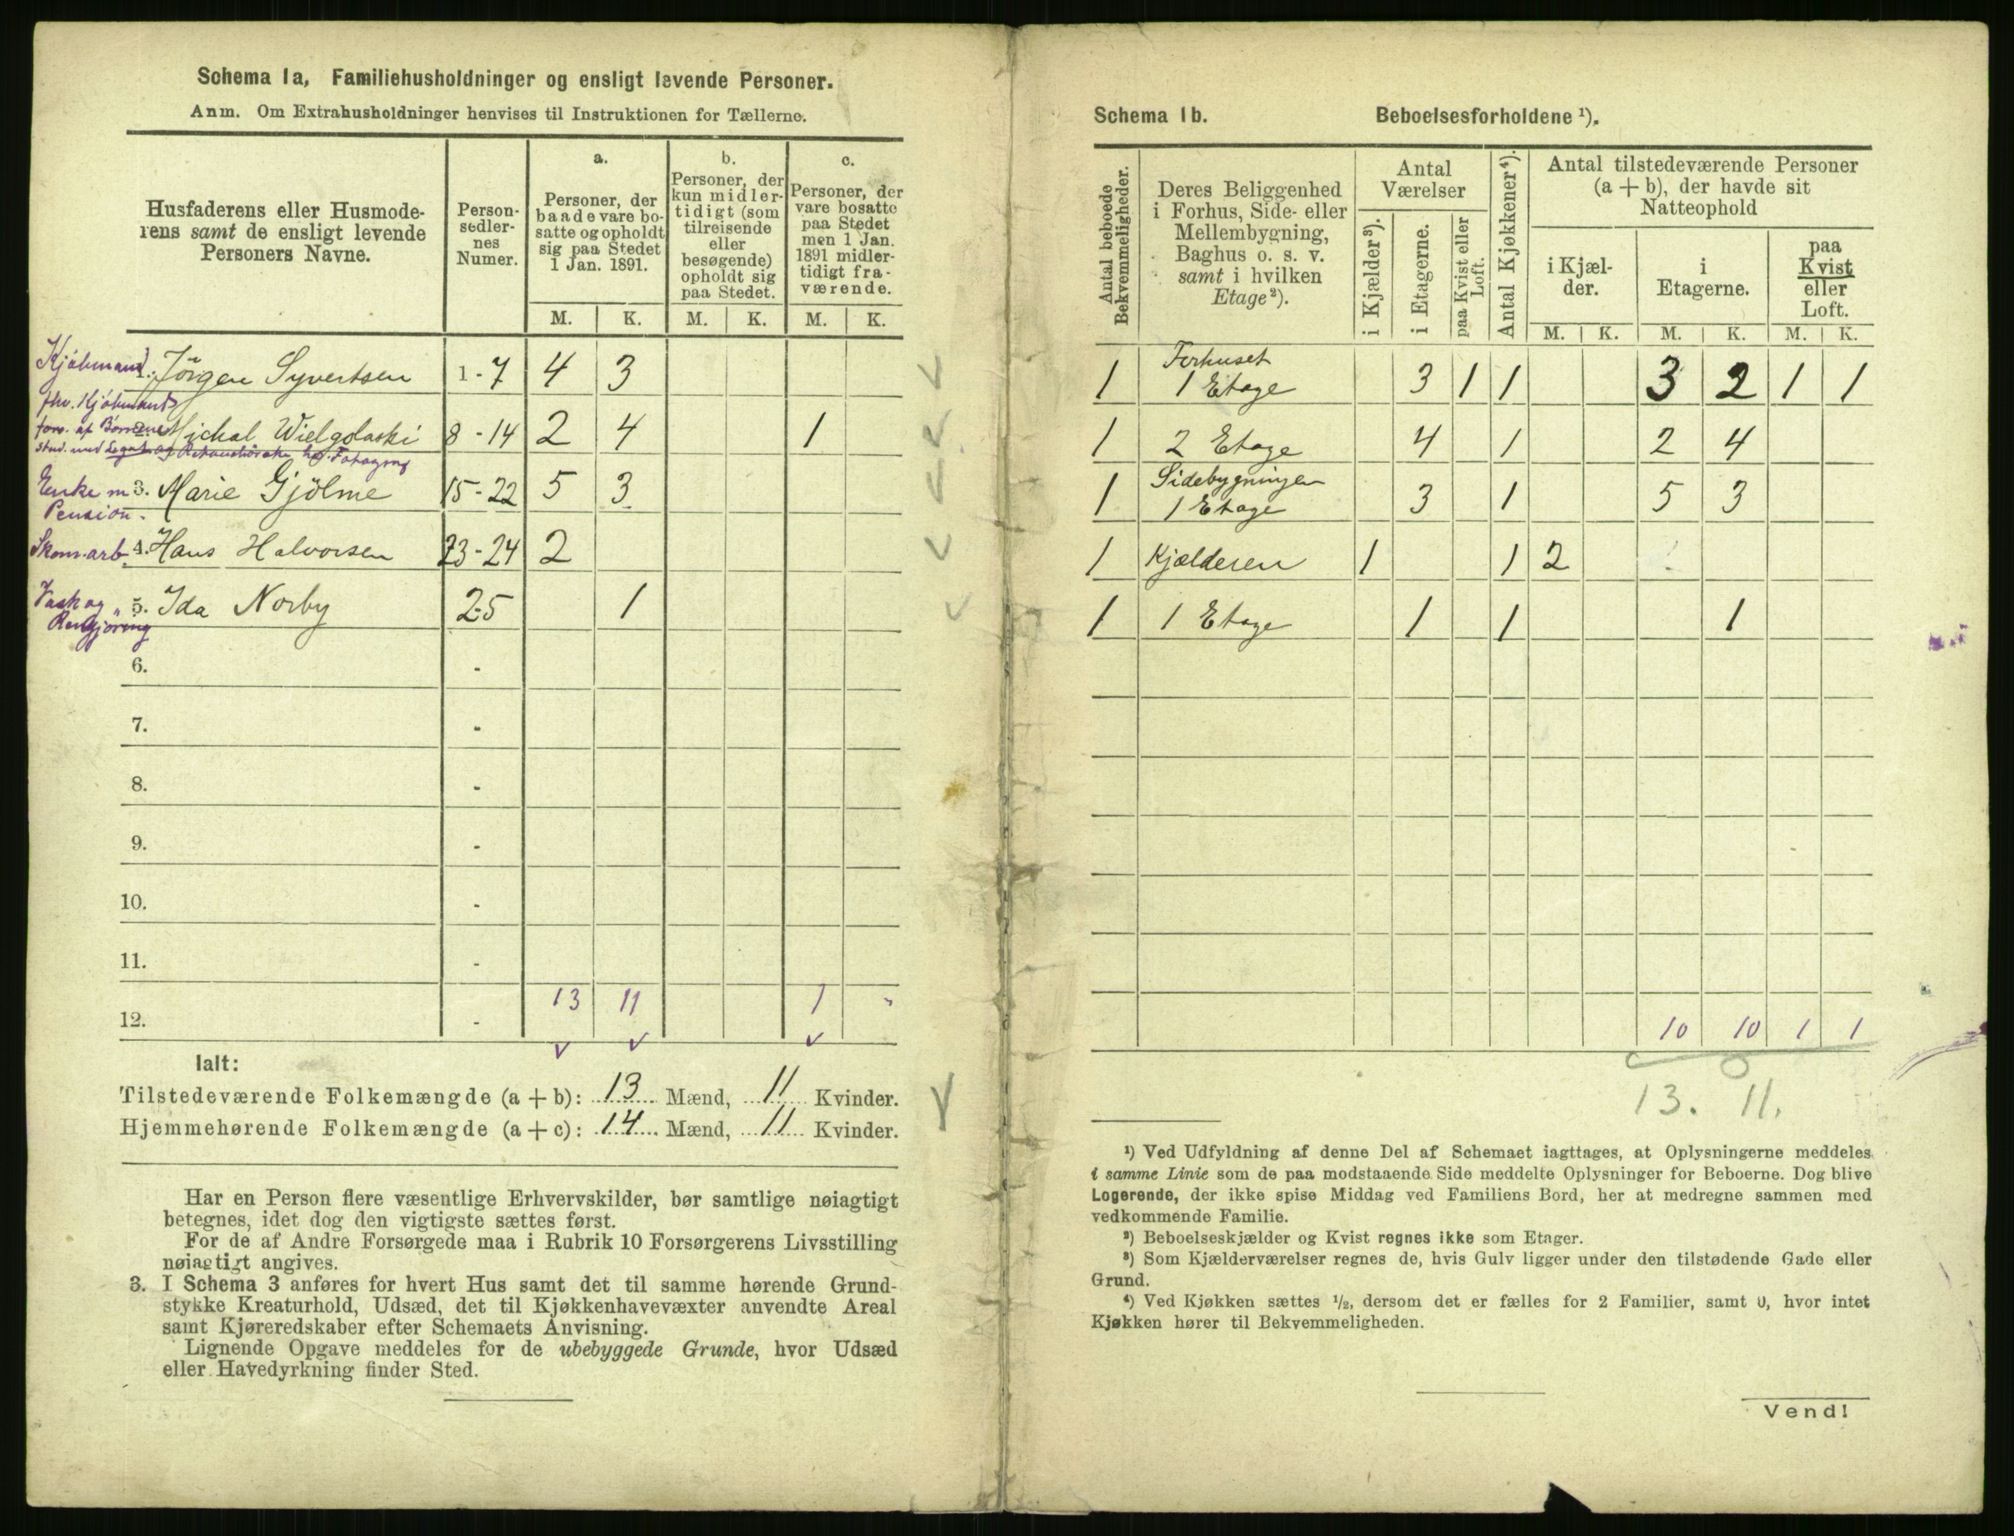 Schema 1a, Familiehusholdninger og ensligt levende Personer.
Anm. Om Extrahusholdninger henvises til Instruktionen for Tællerne.
Husfaderens eller Husmoderens samt de ensligt levende Personers Navne.
Personsedlernes Numer.
a. Personer, der baade vare bosatte og opholdt sig paa Stedet 1 Jan. 1891.
b. Personer, der kun midlertidigt (som tilreisende eller besøgende) opholdt sig paa Stedet.
c. Personer, der vare bosatte paa Stedet men 1 Jan. 1891 midlertidigt fraværende.
M. K. M. K. M. K.
Kjøbmand 1. Jörgen Syvertsen 1-7 4 3
fhv. Kjøbmand
fors. af Børnene
2. Michal Wielgolaski 8-14 2 4 1
stud. med Legat og Fotograf
Enke m. 3. Marie Gjölme 15-22 5 3
Pension.
Skom.arb. 4. Hans Halvorsen 23-24 2
Vask og 5. Ida Norby 25 1
Rengjöring
6. -
7. -
8. -
9. -
10. -
11. -
13 11 1 "
12. -
Ialt:
Tilstedeværende Folkemængde (a + b): 13 Mænd, 11 Kvinder.
Hjemmehørende Folkemængde (a + c): 14 Mænd, 11 Kvinder.
Har en Person flere væsentlige Erhvervskilder, bør samtlige nøiagtigt
betegnes, idet dog den vigtigste sættes først.
For de af Andre Forsørgede maa i Rubrik 10 Forsørgerens Livsstilling
nøiagtigt angives.
3. I Schema 3 anføres for hvert Hus samt det til samme hørende Grund-
stykke Kreaturhold, Udsæd, det til Kjøkkenhavevæxter anvendte Areal
samt Kjøreredskaber efter Schemaets Anvisning.
Lignende Opgave meddeles for de ubebyggede Grunde, hvor Udsæd
eller Havedyrkning finder Sted.
Schema 1b. Beboelsesforholdene ¹).
Antal beboede Bekvemmeligheder.
Deres Beliggenhed i Forhus, Side- eller Mellembygning, Baghus o. s. v. samt i hvilken Etage ²).
Antal Værelser
i Kjælder ³).
i Etagerne.
paa Kvist eller Loft.
Antal Kjøkkener ⁴).
Antal tilstedeværende Personer (a + b), der havde sit Natteophold
i Kjælder.
i Etagerne.
paa Kvist eller Loft.
M. K. M. K. M. K.
Forhuset
1 1 Etage 3 1 1 3 2 1 1
1 2 Etage 4 1 2 4
Sidebygningen
1 1 Etage 3 1 5 3
1 Kjælderen 1 1 2
1 1 Etage 1 1 1
10 10 1 1
13. 11.
¹) Ved Udfyldning af denne Del af Schemaet iagttages, at Oplysningerne meddeles
i samme Linie som de paa modstaaende Side meddelte Oplysninger for Beboerne. Dog blive
Logerende, der ikke spise Middag ved Familiens Bord, her at medregne sammen med
vedkommende Familie.
²) Beboelseskjælder og Kvist regnes ikke som Etager.
³) Som Kjælderværelser regnes de, hvis Gulv ligger under den tilstødende Gade eller
Grund.
⁴) Ved Kjøkken sættes ½, dersom det er fælles for 2 Familier, samt 0, hvor intet
Kjøkken hører til Bekvemmeligheden.
Vend!